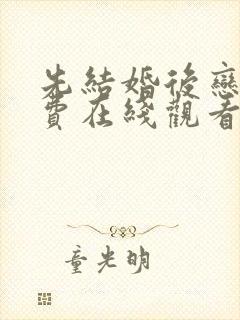 先結婚後戀
費在綫觀看
童光明